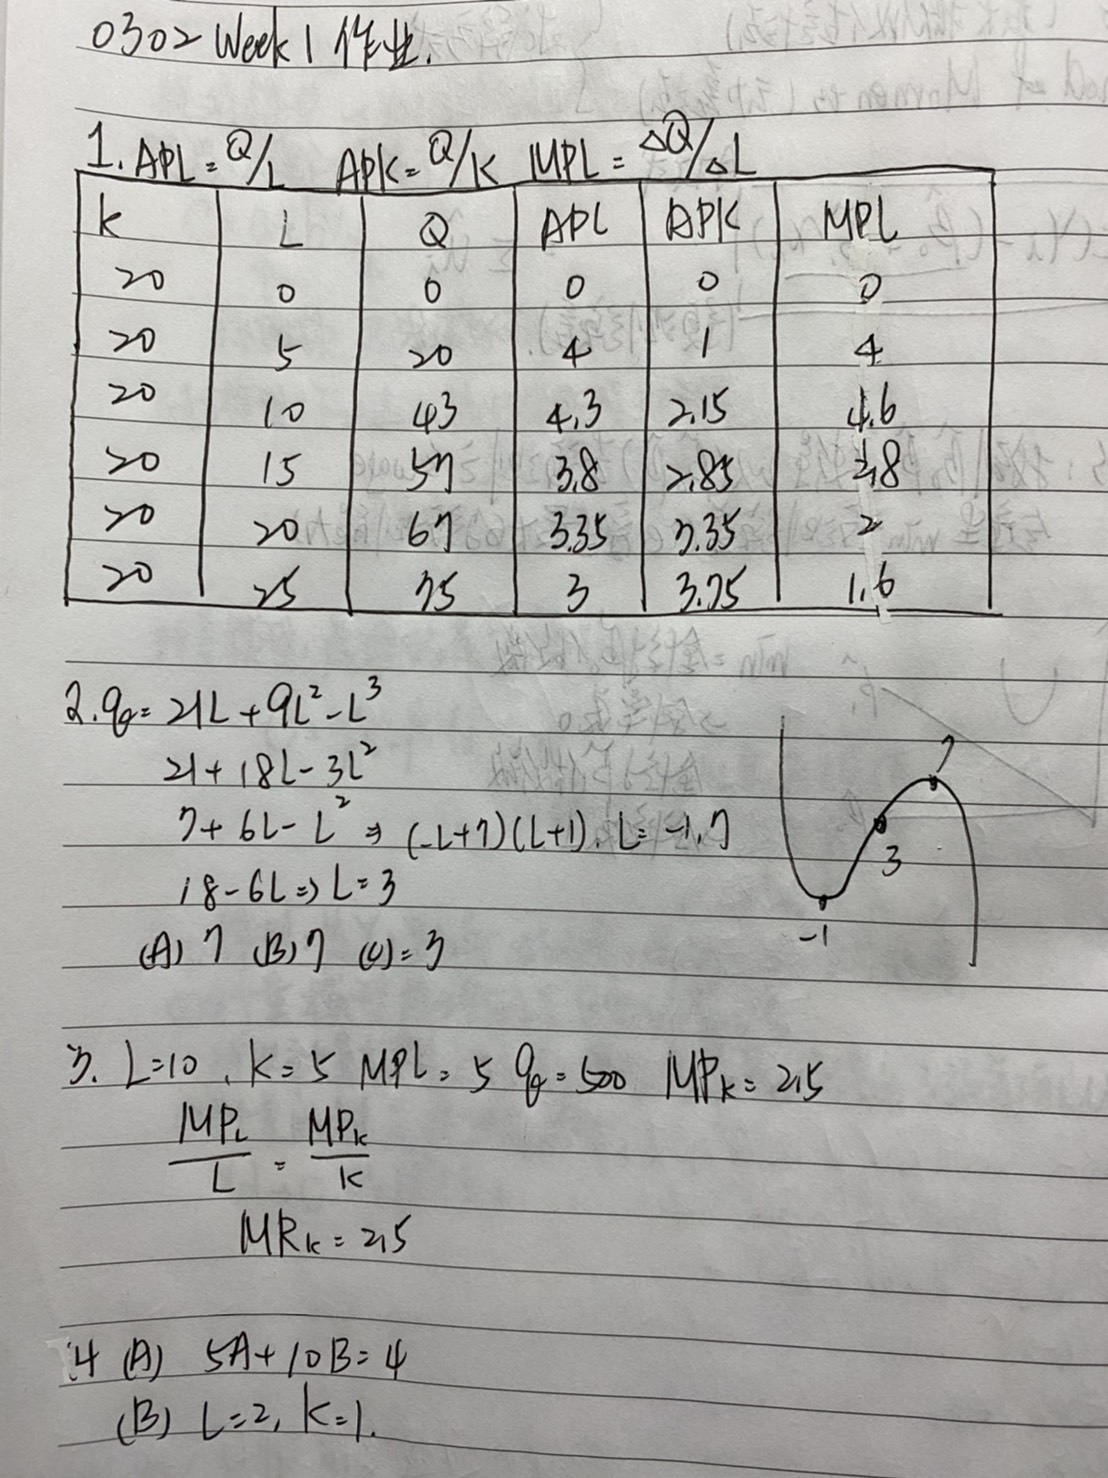 0302 Week 1 作业.
1. APL = Q/L APK = Q/K MPL = ΔQ/ΔL
K L Q APL APK MPL
20 0 0 0 0 0
20 5 20 4 1 4
20 10 43 4.3 2.15 4.6
20 15 57 3.8 2.85 2.8
20 20 67 3.35 3.35 2
20 25 75 3 3.75 1.6
2. q = 21L + 9L² - L³
21 + 18L - 3L²
7 + 6L - L² ⇒ (-L+7)(L+1). L = -1, 7
18 - 6L ⇒ L = 3
(A) 7 (B) 7 (C) = 3
7
3
-1
3. L=10, K=5 MPL = 5 q = 500 MPK = 2.5
MPL/L = MPK/K
MPK = 2.5
4 (A) 5A + 10B = 4
(B) L=2, K=1.